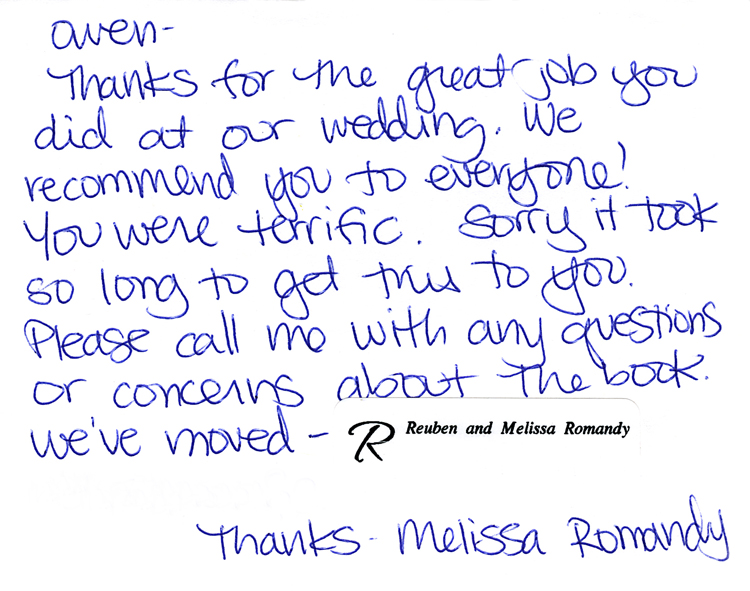 Owen-
Thanks for the great job you
did at our wedding. We
recommend you to everyone!
You were terrific. Sorry it took
so long to get this to you.
Please call me with any questions
or concerns about the book.
we've moved - R Reuben and Melissa Romandy
Thanks - Melissa Romandy